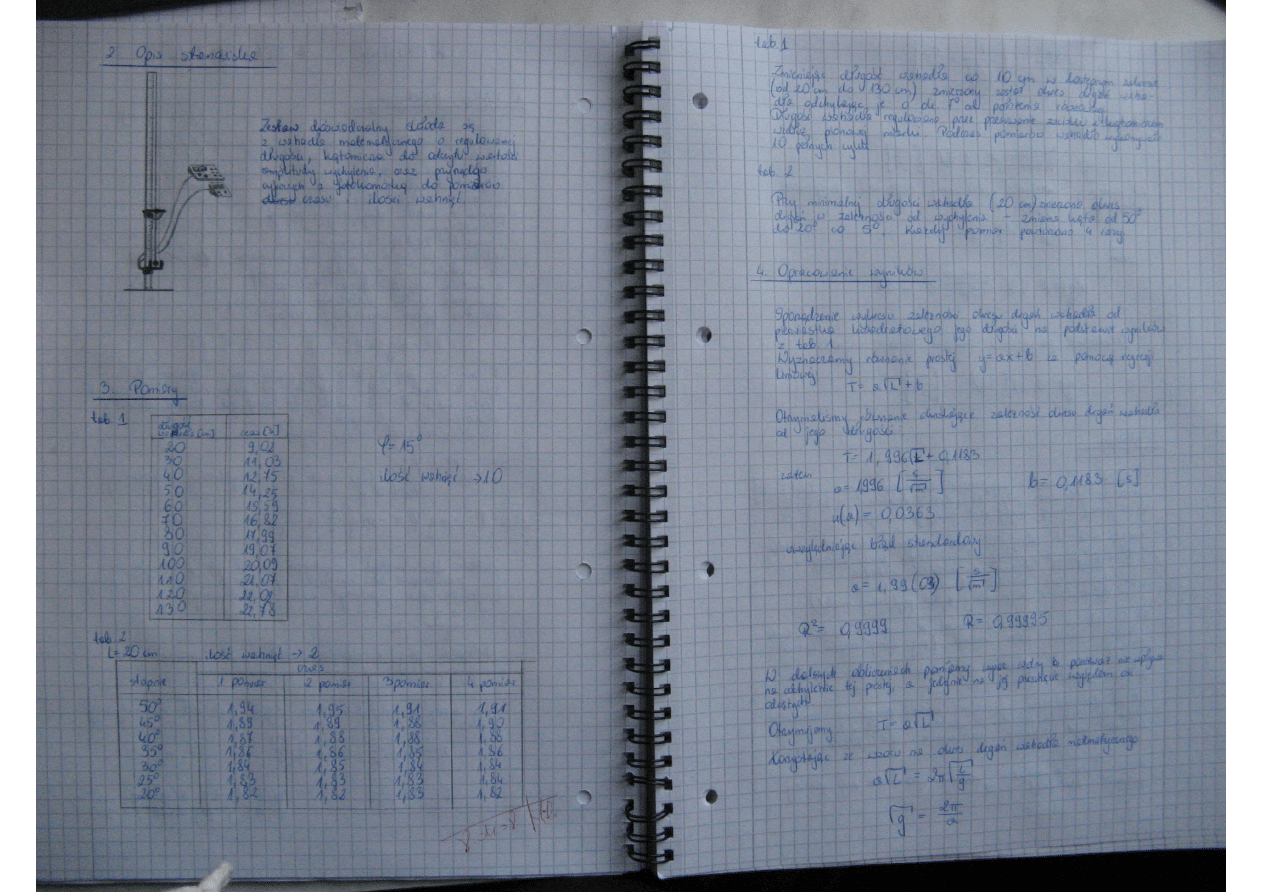 2. Opis stanowiska
Zestaw doświadczalny składa się
z wahadła matematycznego o regulowanej
długości, kątomierza do odczytu wartości
amplitudy wychylenia, oraz przyrządu
cyfrowych z fotokomórką do pomiarów
czasu i ilości wahnięć.
3. Pomiary
tab. 1
długość [cm] czas [s]
20 9,02
30 11,03
40 12,75
50 14,25
60 15,59
70 16,82
80 17,99
90 19,07
100 20,09
110 21,07
120 22,02
130 22,78
φ = 15°
ilość wahnięć → 10
tab. 2
L = 20 cm ilość wahnięć → 2
czas
stopnie 1 pomiar 2 pomiar 3 pomiar 4 pomiar
50° 1,94 1,95 1,91 1,91
45° 1,89 1,89 1,88 1,90
40° 1,87 1,88 1,88 1,88
35° 1,86 1,86 1,85 1,86
30° 1,84 1,85 1,84 1,84
25° 1,83 1,83 1,83 1,84
20° 1,82 1,82 1,83 1,82
tab. 1
Zmieniając długość wahadła co 10 cm w dostępnym zakresie
(od 20 cm do 130 cm) zmierzony został okres drgań waha-
dła odchylając je o kąt 7° od położenia równowagi.
Długość wahadła regulowana przez przesuwanie
wzdłuż pionowej miarki. Podczas pomiarów wahadło wykonywało
10 pełnych
tab. 2
Przy minimalnej długości wahadła (20 cm) zmierzono okres
drgań w zależności od wychylenia - zmiana kąta od 50°
do 20° co 5°. Każdy pomiar powtórzono 4 razy.
4. Opracowanie wyników
Sporządzenie wykresu zależności okresu drgań wahadła od
pierwiastka kwadratowego jego długości na podstawie wyników
z tab. 1
Wyznaczamy równanie prostej y=ax+b za pomocą regresji
liniowej
T = a√L + b
Otrzymaliśmy równanie określające zależność okresu drgań wahadła
od jego długości
T = 1,996√L + 0,1183
zatem
a = 1996 [s/√m] b = 0,1183 [s]
u(a) = 0,0363
uwzględniając błąd standardowy
a = 1,99(03) [s/√m]
R² = 0,9999 R = 0,99995
W dalszych obliczeniach pomijamy wyraz wolny b ponieważ nie wpływa
na odchylenie tej prostej, a jedynie na jej przesunięcie względem osi
odciętych
Otrzymujemy T = a√L
Korzystając ze wzoru na okres drgań wahadła matematycznego
a√L = 2π√(L/g)
√g = 2π/a